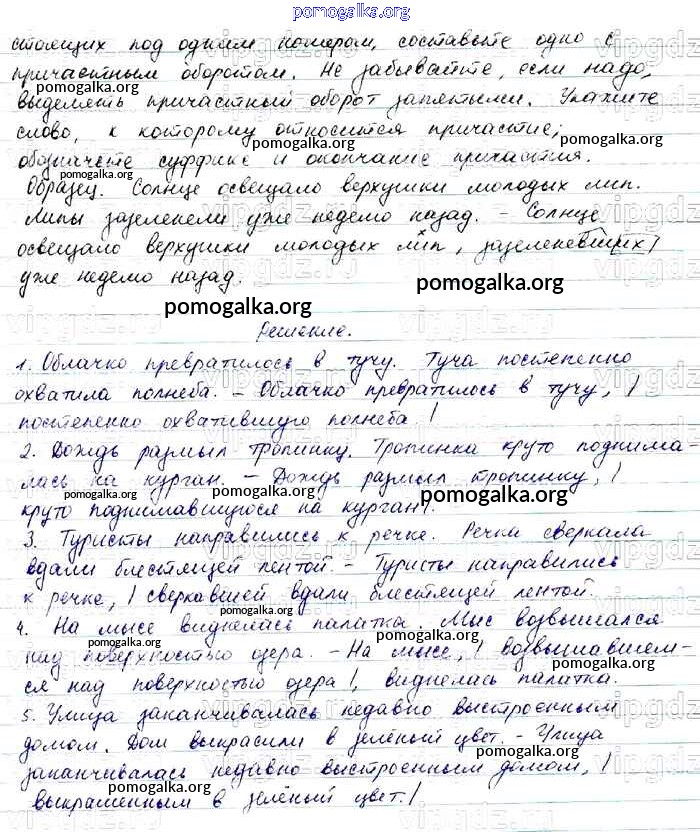 pomogalka.org
стоящих под одним номером, составьте одно с
причастным оборотом. Не забывайте, если надо,
выделять причастный оборот запятыми. Укажите
слово, к которому относится причастие;
обозначьте суффикс и окончание причастия.
Образец. Солнце освещало верхушки молодых лип.
Липы зазеленели уже неделю назад. – Солнце
освещало верхушки молодых лип, зазеленевших
уже неделю назад.
pomogalka.org
Решение.
1. Облачко превратилось в тучу. Туча постепенно
охватила полнеба. – Облачко превратилось в тучу, |
постепенно охватившую полнеба. |
2. Дождь размыл тропинку. Тропинка круто поднима-
лась на курган. – Дождь размыл тропинку, |
круто поднимавшуюся на курган |.
3. Туристы направились к речке. Речка сверкала
вдали блестящей лентой. – Туристы направились
к речке, | сверкавшей вдали блестящей лентой.
4. На мысе виднелась палатка. Мыс возвышался
над поверхностью озера. – На мысе, | возвышавшем-
ся над поверхностью озера |, виднелась палатка.
5. Улица заканчивалась недавно выстроенным
домом. Дом выкрасили в зелёный цвет. – Улица
заканчивалась недавно выстроенным домом, |
выкрашенным в зелёный цвет. |